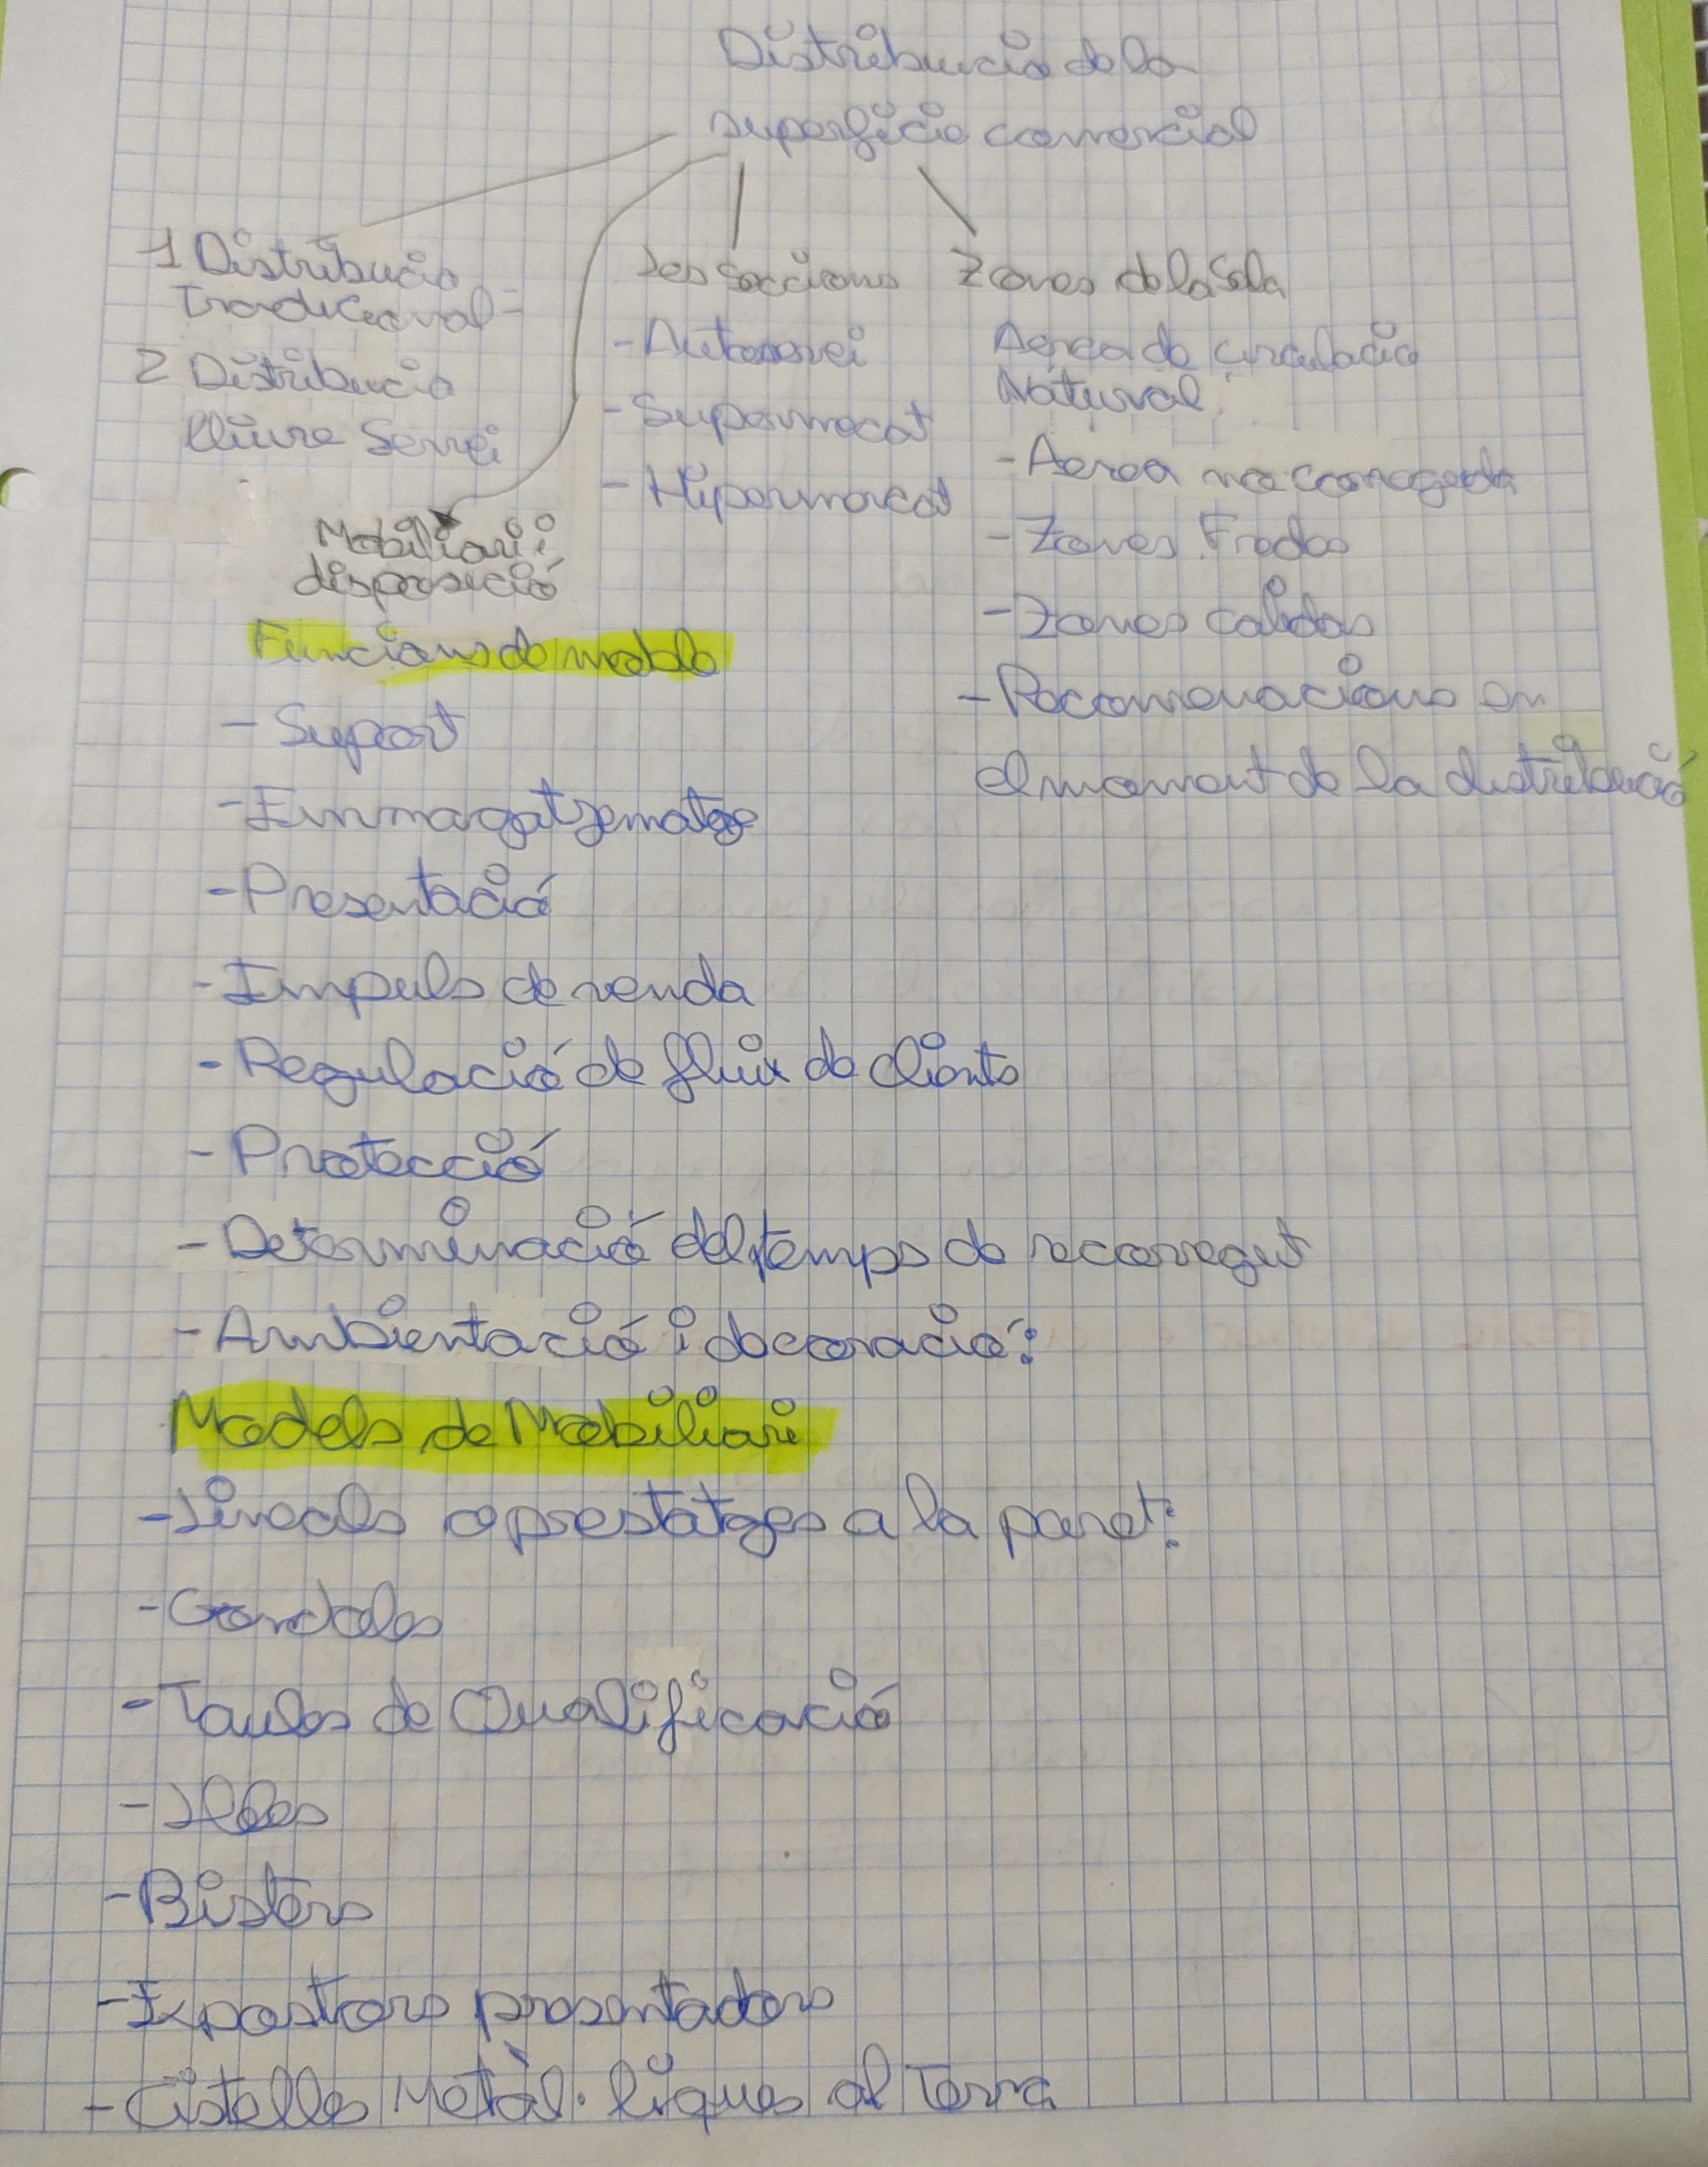 Distribucio de la
superficie comercial
1 Distribucio
Tradicional=
2 Distribucio
lliure Servei
Les Seccions
- Autoservei
- Supermecat
- Hipermarcat
Zones de la Sala
Aerea de circulacio
Natural:
- Aerea no corregeda
- Zones Fredas
- Zones calidas
- Recomenacions en
el moment de la distribució
Mobiliari i
disposició
Funcions de moble
- Suport
- Emmagatzematge
- Presentació
- Impuls de venda
- Regulació de fluix de clients
- Protecció
- Determinació del temps de recorregut
- Ambientació i decoració:
Models de Mobiliari
- Lineals o prestatges a la paret:
- Gondoles
- Taules de Qualificació
- Illes
- Bisters
- Expositors presentadors
- Cistelles Metàl·liques al Terra